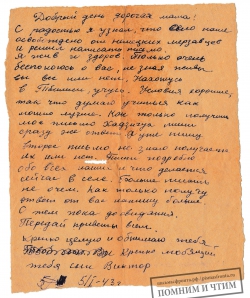 Добрый день дорогая мама!
С радостью я узнал, что село наше
освобождено от немецких мерзавцев
и решил написать письмо
я жив и здоров только очень
беспокоюсь о вас, не зная живы
вы все или нет. Нахожусь
в учусь. Условия хорошие,
так что думаю учиться как
можно лучше. Как только получишь
мое письмо
сразу же ответ. Я уже пишу
второе письмо но знаю получаете
их или нет. Пиши подробно
обо всем и что делается
сейчас в селе. Больше писать
не о чем. Как только получу
ответ от вас напишу больше.
С тем пока до свидания.
Передай приветы всем.
Крепко целую и обнимаю тебя
Крепко любящий
тебя сын Виктор
5/I-43г
ПОМНИМ И ЧТИМ